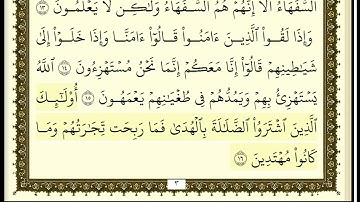 ٱلسُّفَهَآءُ أَلَآ إِنَّهُمْ هُمُ ٱلسُّفَهَآءُ وَلَٰكِن لَّا يَعْلَمُونَ ١٣
وَإِذَا لَقُوا۟ ٱلَّذِينَ ءَامَنُوا۟ قَالُوٓا۟ ءَامَنَّا وَإِذَا خَلَوْا۟ إِلَىٰ
شَيَٰطِينِهِمْ قَالُوٓا۟ إِنَّا مَعَكُمْ إِنَّمَا نَحْنُ مُسْتَهْزِءُونَ ١٤ ٱللَّهُ
يَسْتَهْزِئُ بِهِمْ وَيَمُدُّهُمْ فِى طُغْيَٰنِهِمْ يَعْمَهُونَ ١٥ أُو۟لَٰٓئِكَ
ٱلَّذِينَ ٱشْتَرَوُا۟ ٱلضَّلَٰلَةَ بِٱلْهُدَىٰ فَمَا رَبِحَت تِّجَٰرَتُهُمْ وَمَا
كَانُوا۟ مُهْتَدِينَ ١٦
٣